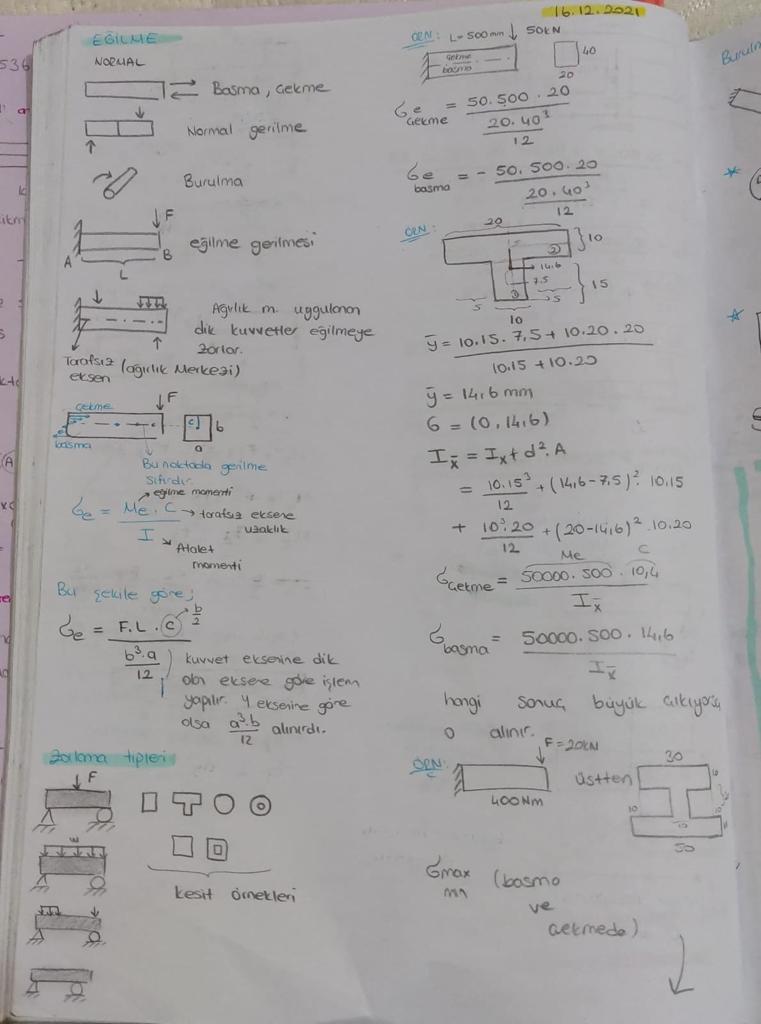 16.12.2021
EĞİLME
NORMAL
Basma, Çekme
Normal gerilme
Burulma
F
A
B
L
eğilme gerilmesi
Ağırlık m. uygulanan
dik kuvvetler eğilmeye
zorlar.
Tarafsız (ağırlık Merkezi)
eksen
çekme
F
basma
c
b
a
Bu noktada gerilme
sıfırdır.
eğilme momenti
σe = Me . C → tarafsız eksene
uzaklık
I
Atalet
momenti
Bu şekile göre;
σe = F.L.C
b/2
b³.a/12
kuvvet eksenine dik
olan eksene göre işlem
yapılır. Y eksenine göre
olsa a³.b/12 alınırdı.
Zorlama tipleri
F
w
kesit örnekleri
ÖRN: L=500mm 50kN
çekme
basma
40
20
σe çekme = 50.500.20 / (20.40³/12)
σe basma = - 50.500.20 / (20.40³/12)
ÖRN:
20
10
2
14,6
7.5
15
5
1
5
10
ȳ = 10.15.7,5 + 10.20.20 / 10.15 + 10.20
ȳ = 14,6 mm
G = (0, 14,6)
Ix̄ = Ix + d².A
= 10.15³/12 + (14,6-7,5)².10.15
+ 10³.20/12 + (20-14,6)².10.20
Me
C
σçekme = 50000.500.10,4 / Ix̄
σbasma = 50000.500.14,6 / Ix̄
hangi sonuç büyük çıkıyorsa
o alınır.
ÖRN:
F=20kN
400Nm
üstten
30
10
10
50
σmax (basma
ve
çekmede)
536
Burulm